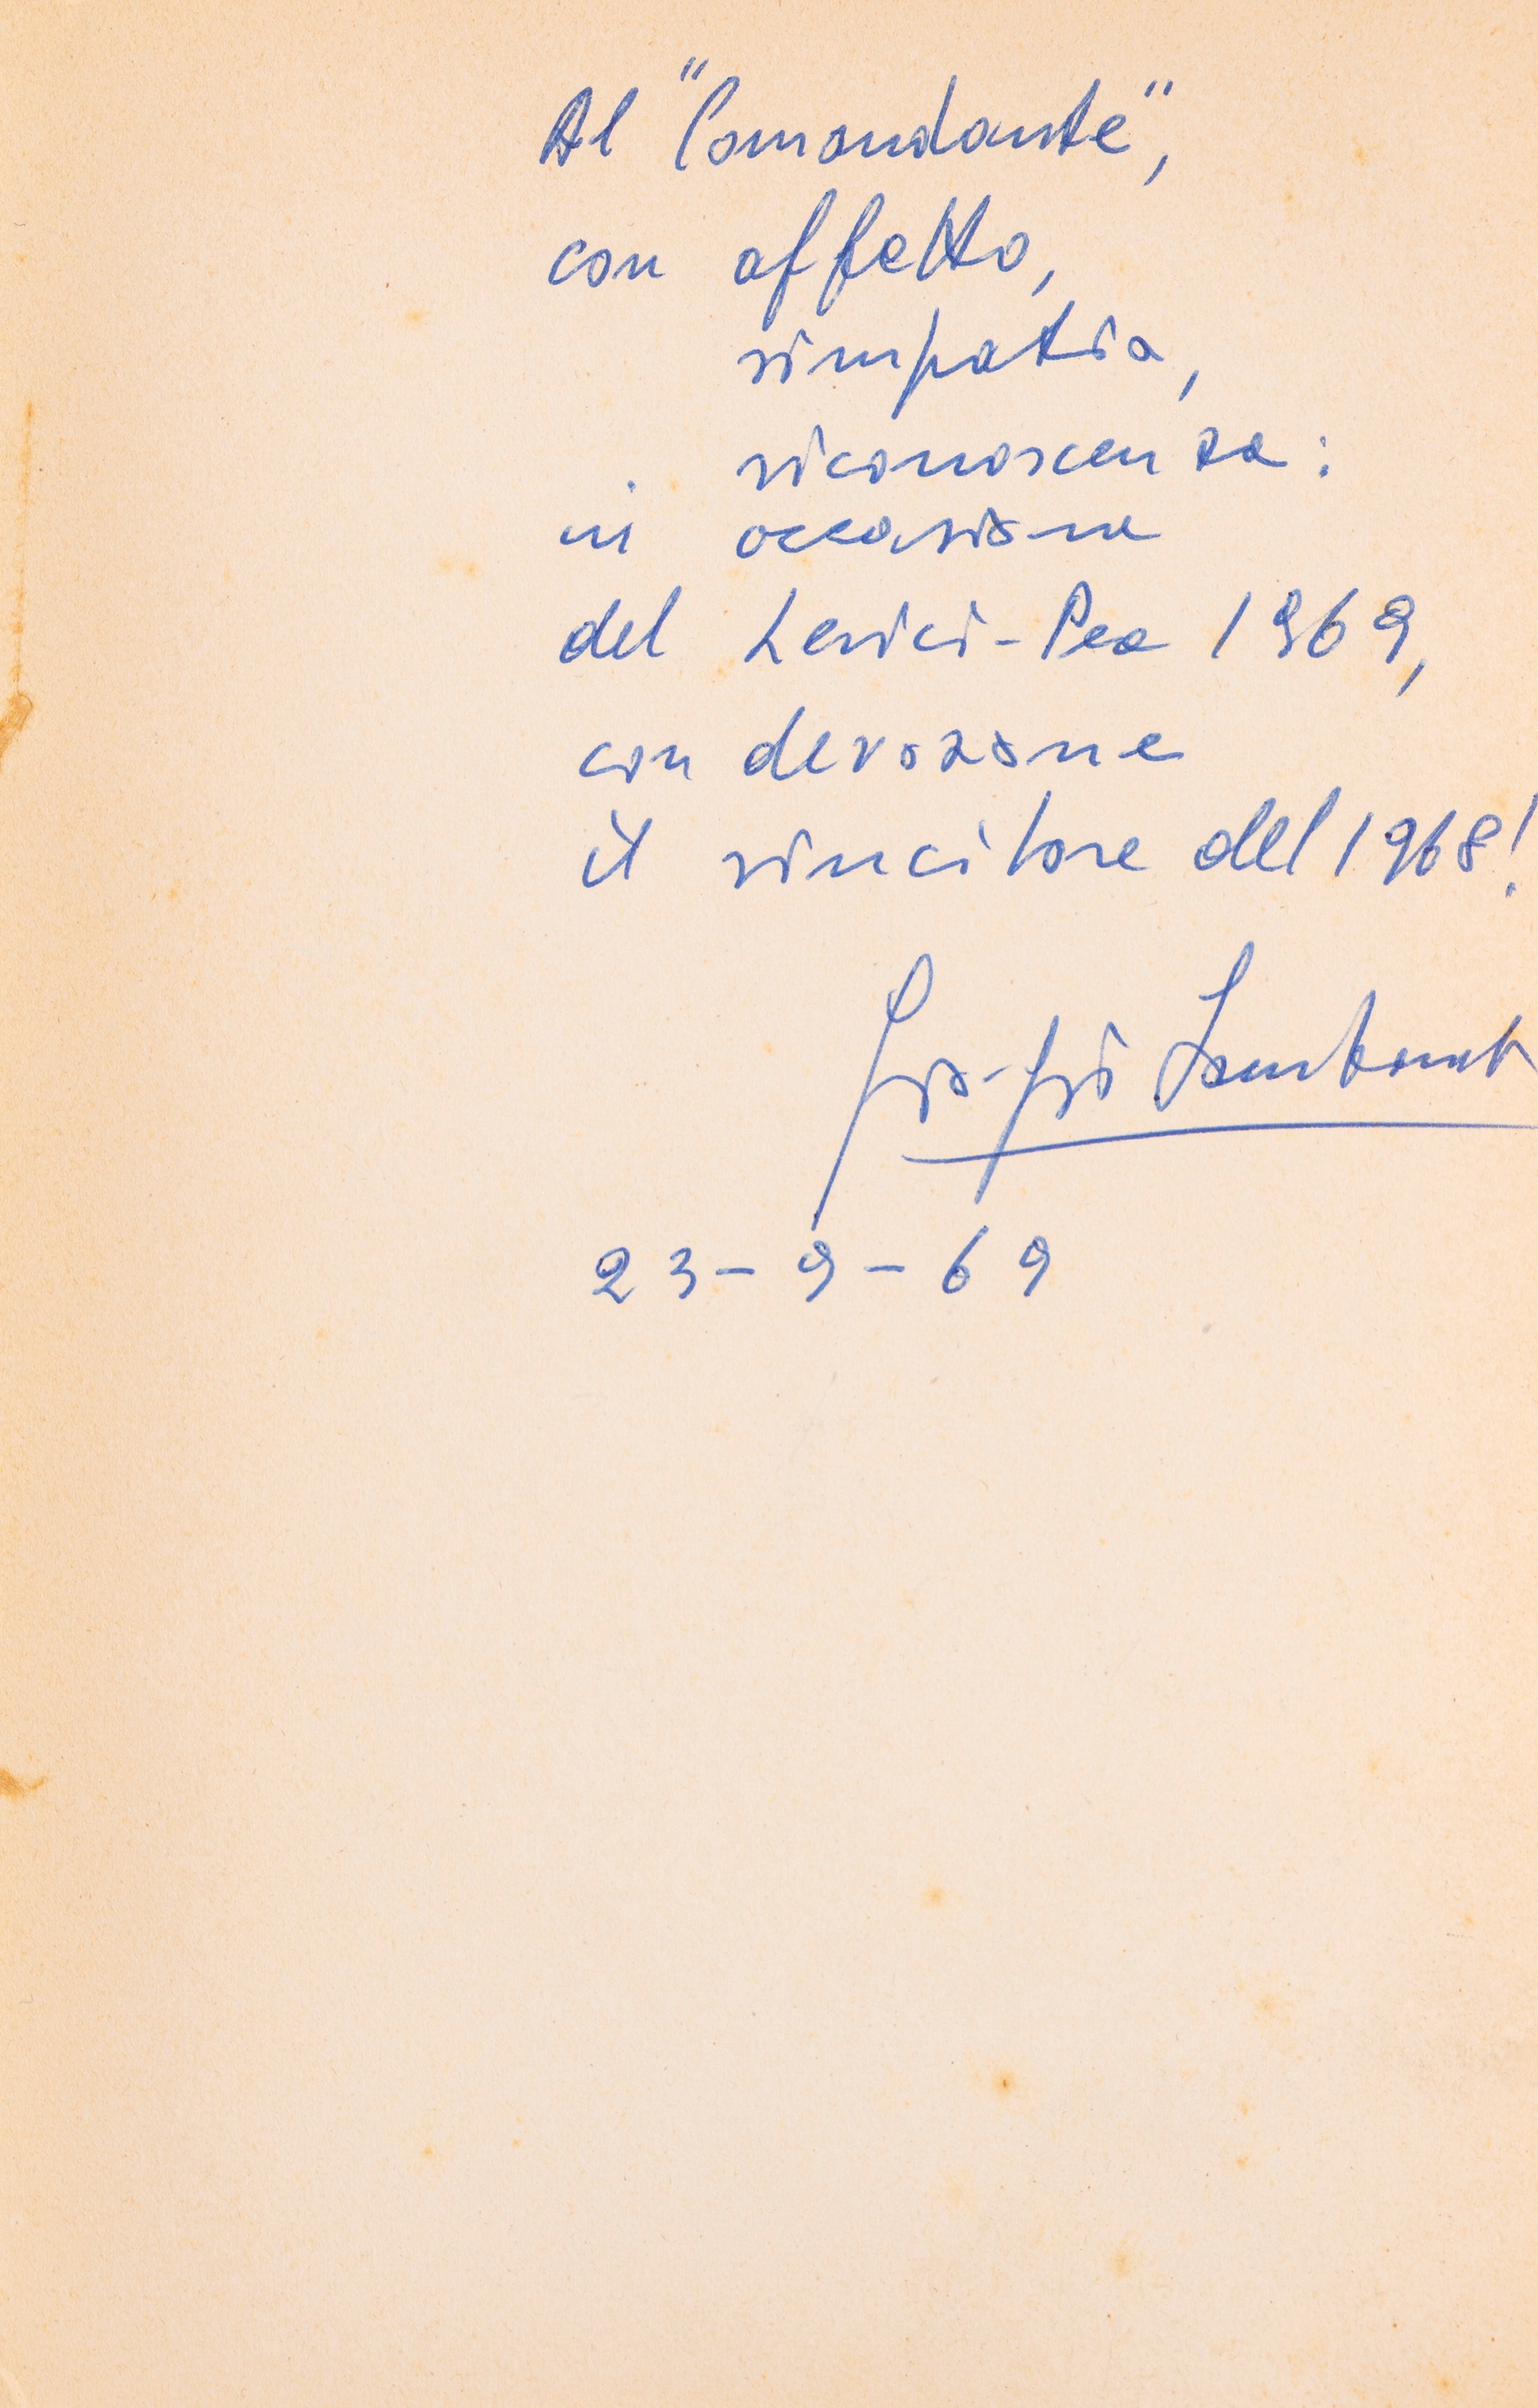 Al "Comandante",
con affetto,
simpatia,
riconoscenza:
in occasione
del Lerici-Pea 1969,
con devozione
il vincitore del 1968!
23-9-69